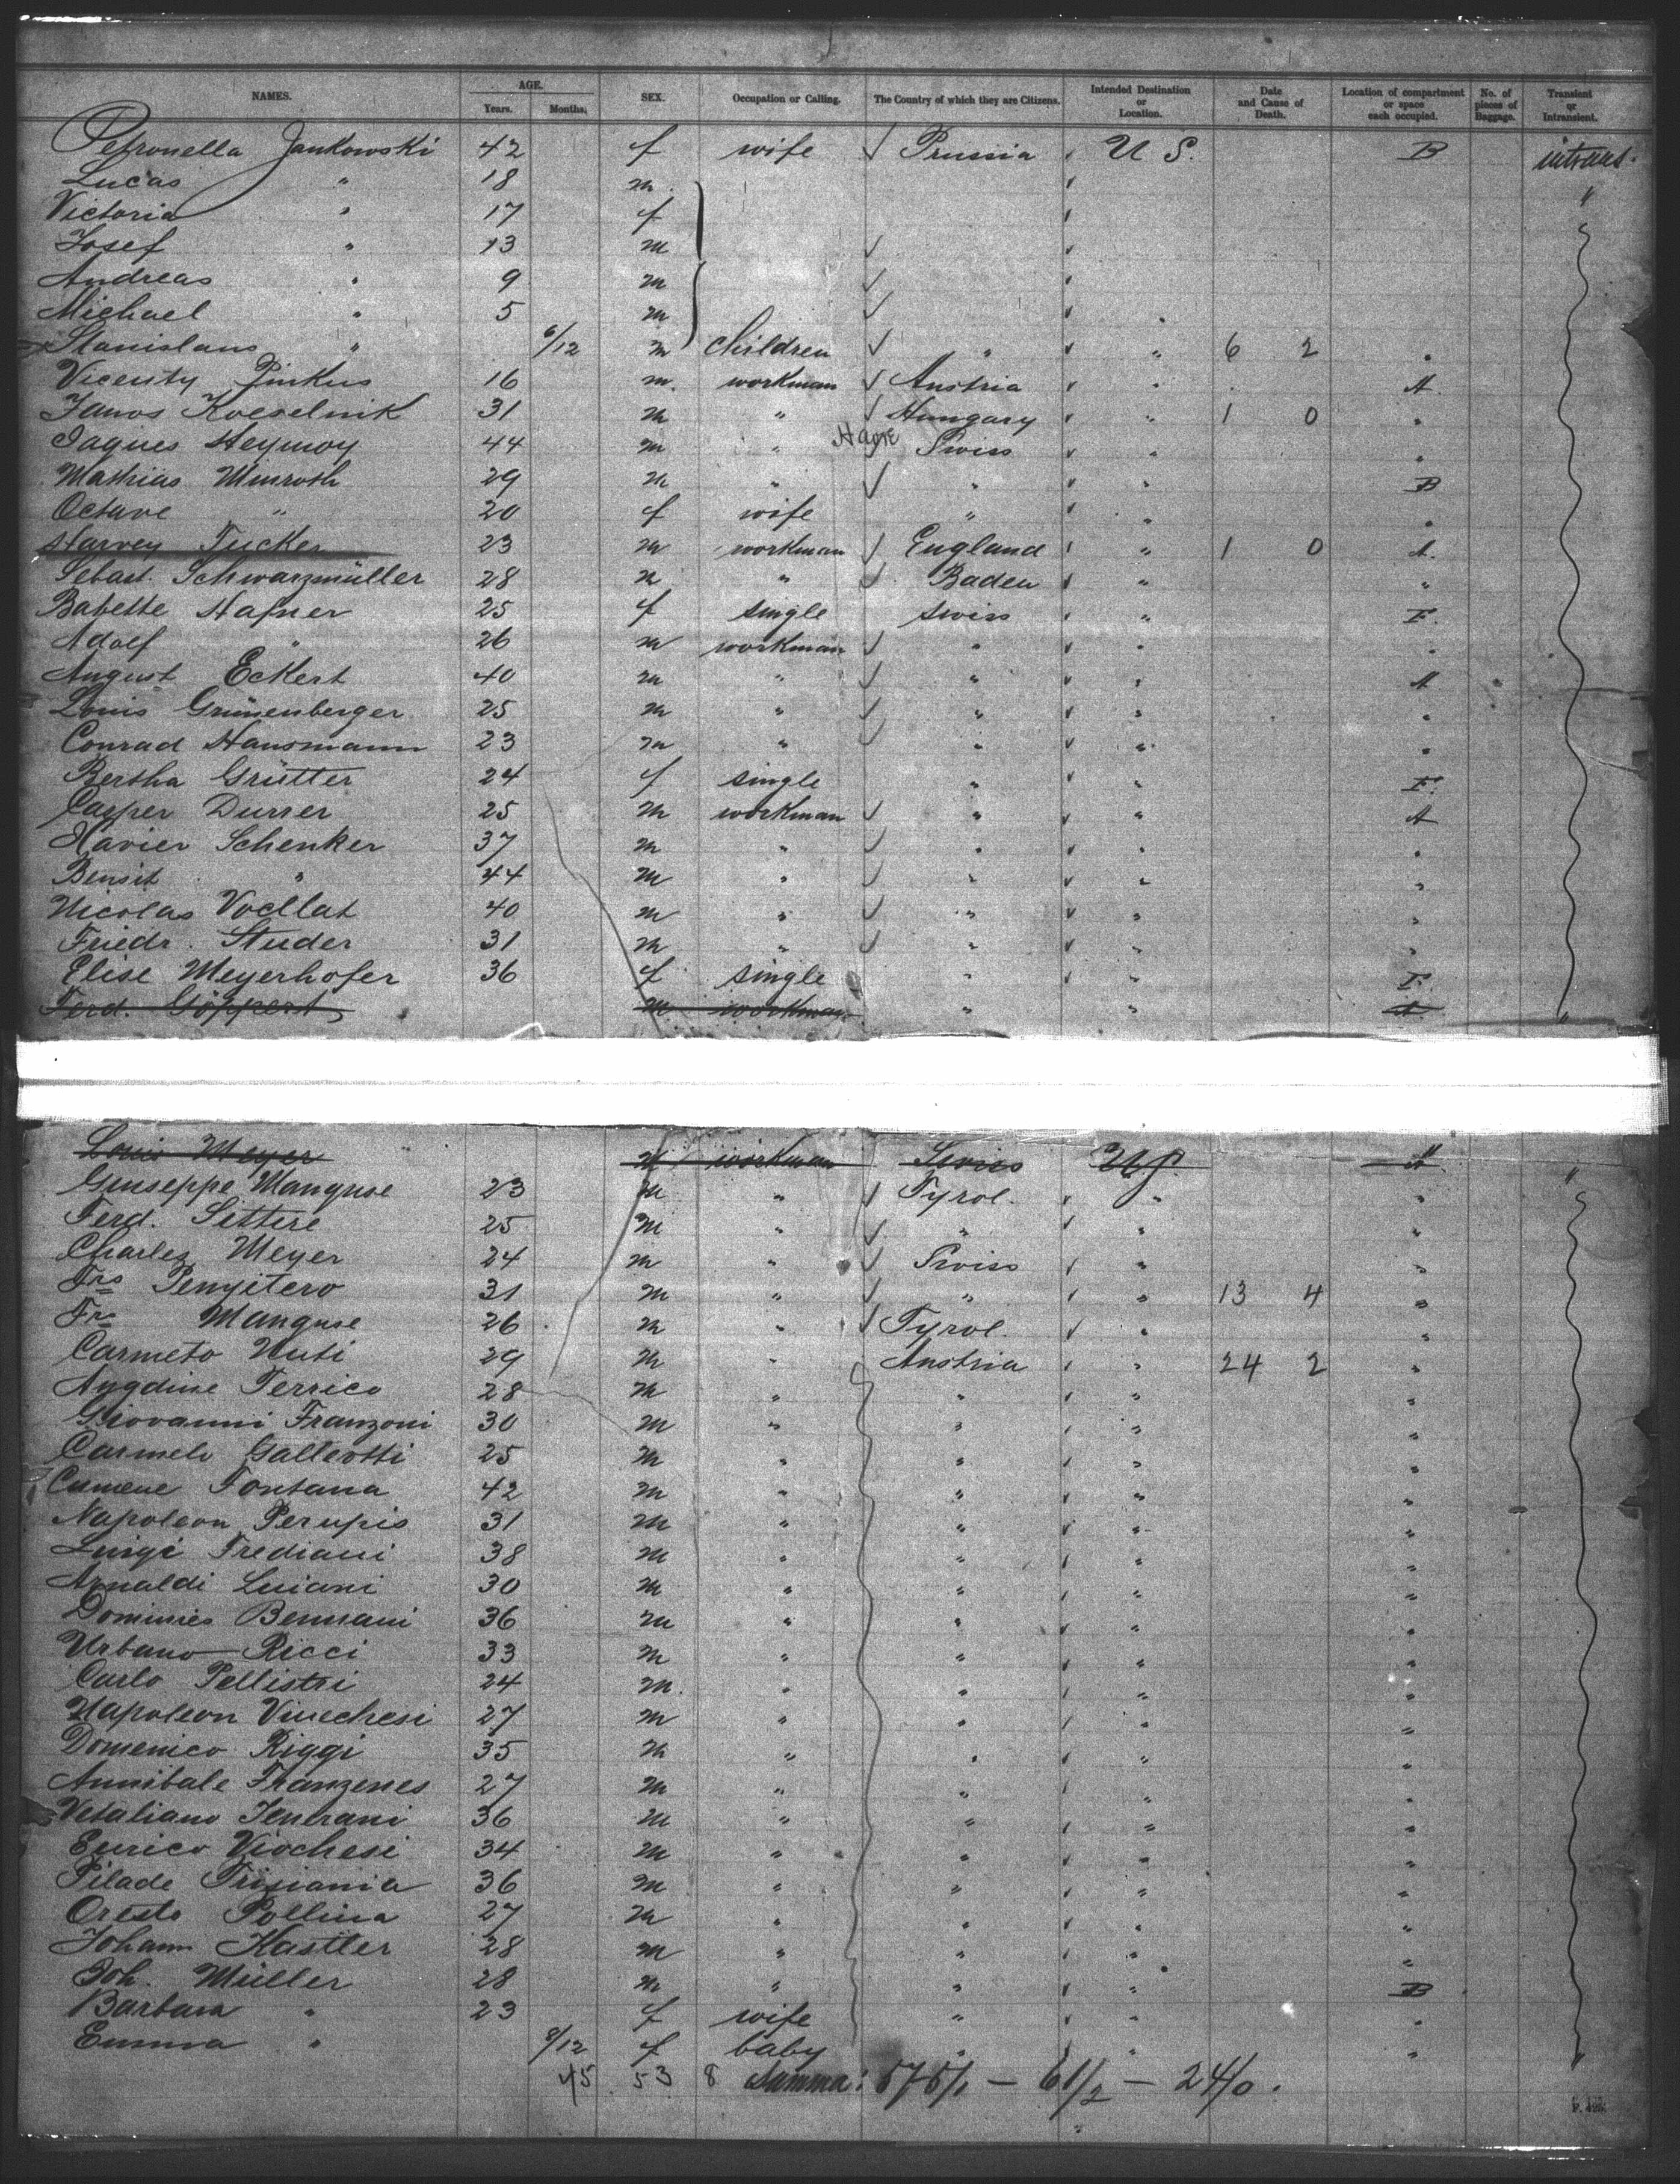 NAMES. AGE. Years. Months. SEX. Occupation or Calling. The Country of which they are Citizens. Intended Destination or Location. Date and Cause of Death. Location of compartment or space each occupied. No. of pieces of Baggage. Transient or Intransient.
Petronella Jankowski 42 f wife ✓ Prussia U S. B intrans.
Lucas " 18 m "
Victoria " 17 f
Josef " 13 m ✓
Andreas " 9 m ✓
Michael " 5 m ✓
Stanislaus " 6/12 m children ✓ " " 6 2 "
Vicenty Pinkus 16 m. workman ✓ Austria " A
Janos Koeselnik 31 m " ✓ Hungary " 1 0 "
Jaques Heymoy 44 m " Havre Swiss " "
Mathias Munroth 29 m " ✓ " " B
Octave " 20 f wife " " "
Harvey Tucker 23 m workman ✓ England " 1 0 A.
Sebast. Schwarzmüller 28 m " ✓ Baden " "
Babette Hafner 25 f single swiss " F.
Adolf " 26 m workman ✓ " " "
August Eckert 40 m " ✓ " " A
Louis Grünenberger 25 m " ✓ " " "
Conrad Hausmann 23 m " ✓ " " "
Bertha Grütter 24 f single " " F.
Casper Durrer 25 m workman ✓ " " A
Xavier Schenker 37 m " ✓ " " "
Benoit " 44 m " ✓ " " "
Nicolas Voellat 40 m " ✓ " " "
Friedr. Studer 31 m " ✓ " " "
Elise Meyerhofer 36 f single " " F.
Ferd. Göppert m workman " " A "
Louis Meyer m workman Swiss U S. A "
Giuseppe Manguse 23 m " ✓ Tyrol. " "
Ferd. Sittire 25 m " ✓ " " "
Charles Meyer 24 m " ✓ Swiss " "
Frs Penyitero 31 m " ✓ " " 13 4 "
Frs Manguse 26 m " ✓ Tyrol. " "
Carmeto Nuti 29 m " Austria " 24 2 "
Aygdine Terrico 28 m " " " "
Giovanni Franzoni 30 m " " " "
Carmelo Galleotti 25 m " " " "
Cumene Fontana 42 m " " " "
Napoleon Perupis 31 m " " " "
Luigi Frediani 38 m " " " "
Arnaldi Luiani 30 m " " " "
Bennani 36 m " " " "
Urbano Ricci 33 m " " " "
Carlo Pellistri 24 m. " " " "
Napoleon Vinechesi 27 m " " " "
Domenico Riggi 35 m " " " "
Annibale Franzenes 27 m " " " "
Vetaliano Tenerani 36 m " " " "
Enrico Viochesi 34 m " " " "
Pilade Trisiania 36 m " " " "
Oresto Pollina 27 m " " " "
Johann Kastler 28 m " " " "
Joh. Müller 28 m " " " B
Barbara " 23 f wife " " "
Emma " 8/12 f baby " " " "
45 53 8 Summa: 575/1 — 6 1/2 — 24/0.